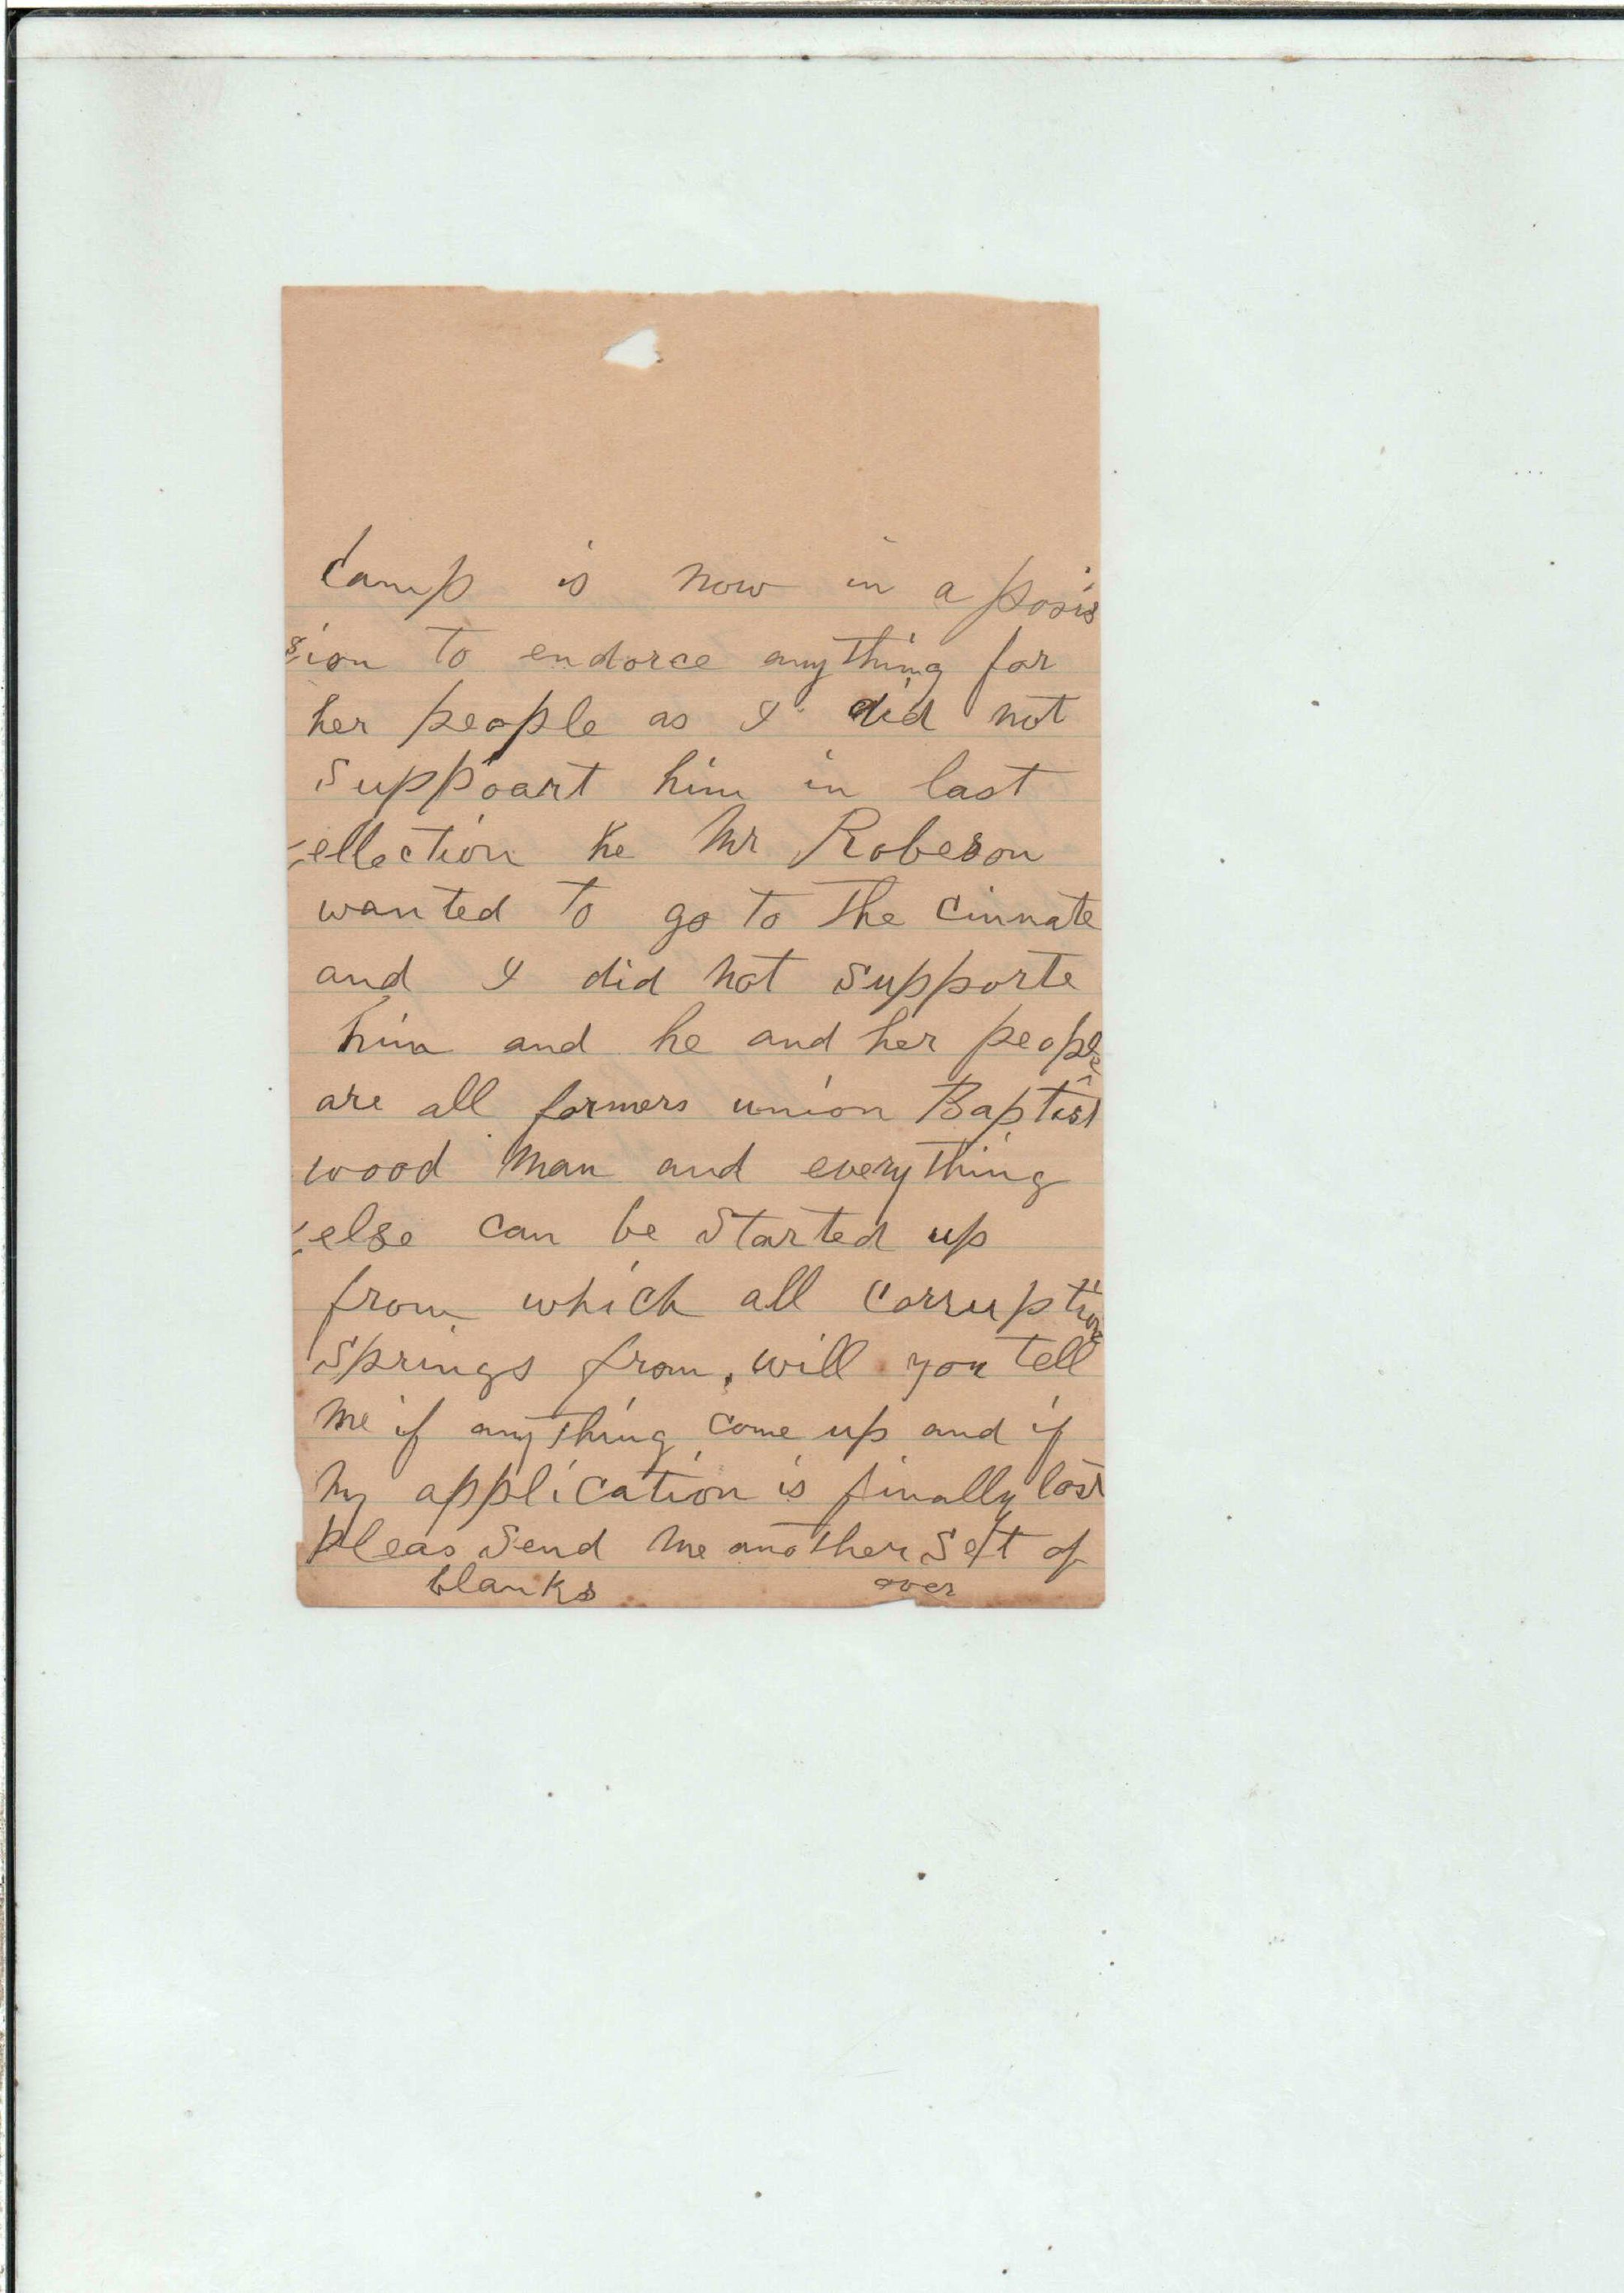 Camp is now in a posis
sion to endorce anything for
her people as I did not
suppoart him in last
ellection he Mr Roberson
wanted to go to the cinnate
and I did not supporte
him and he and her people
are all formers union Baptist
wood man and everything
else can be started up
from which all corruption
springs from, will you tell
me if anything come up and if
my application is finally lost
pleas send me another set of
blanks over